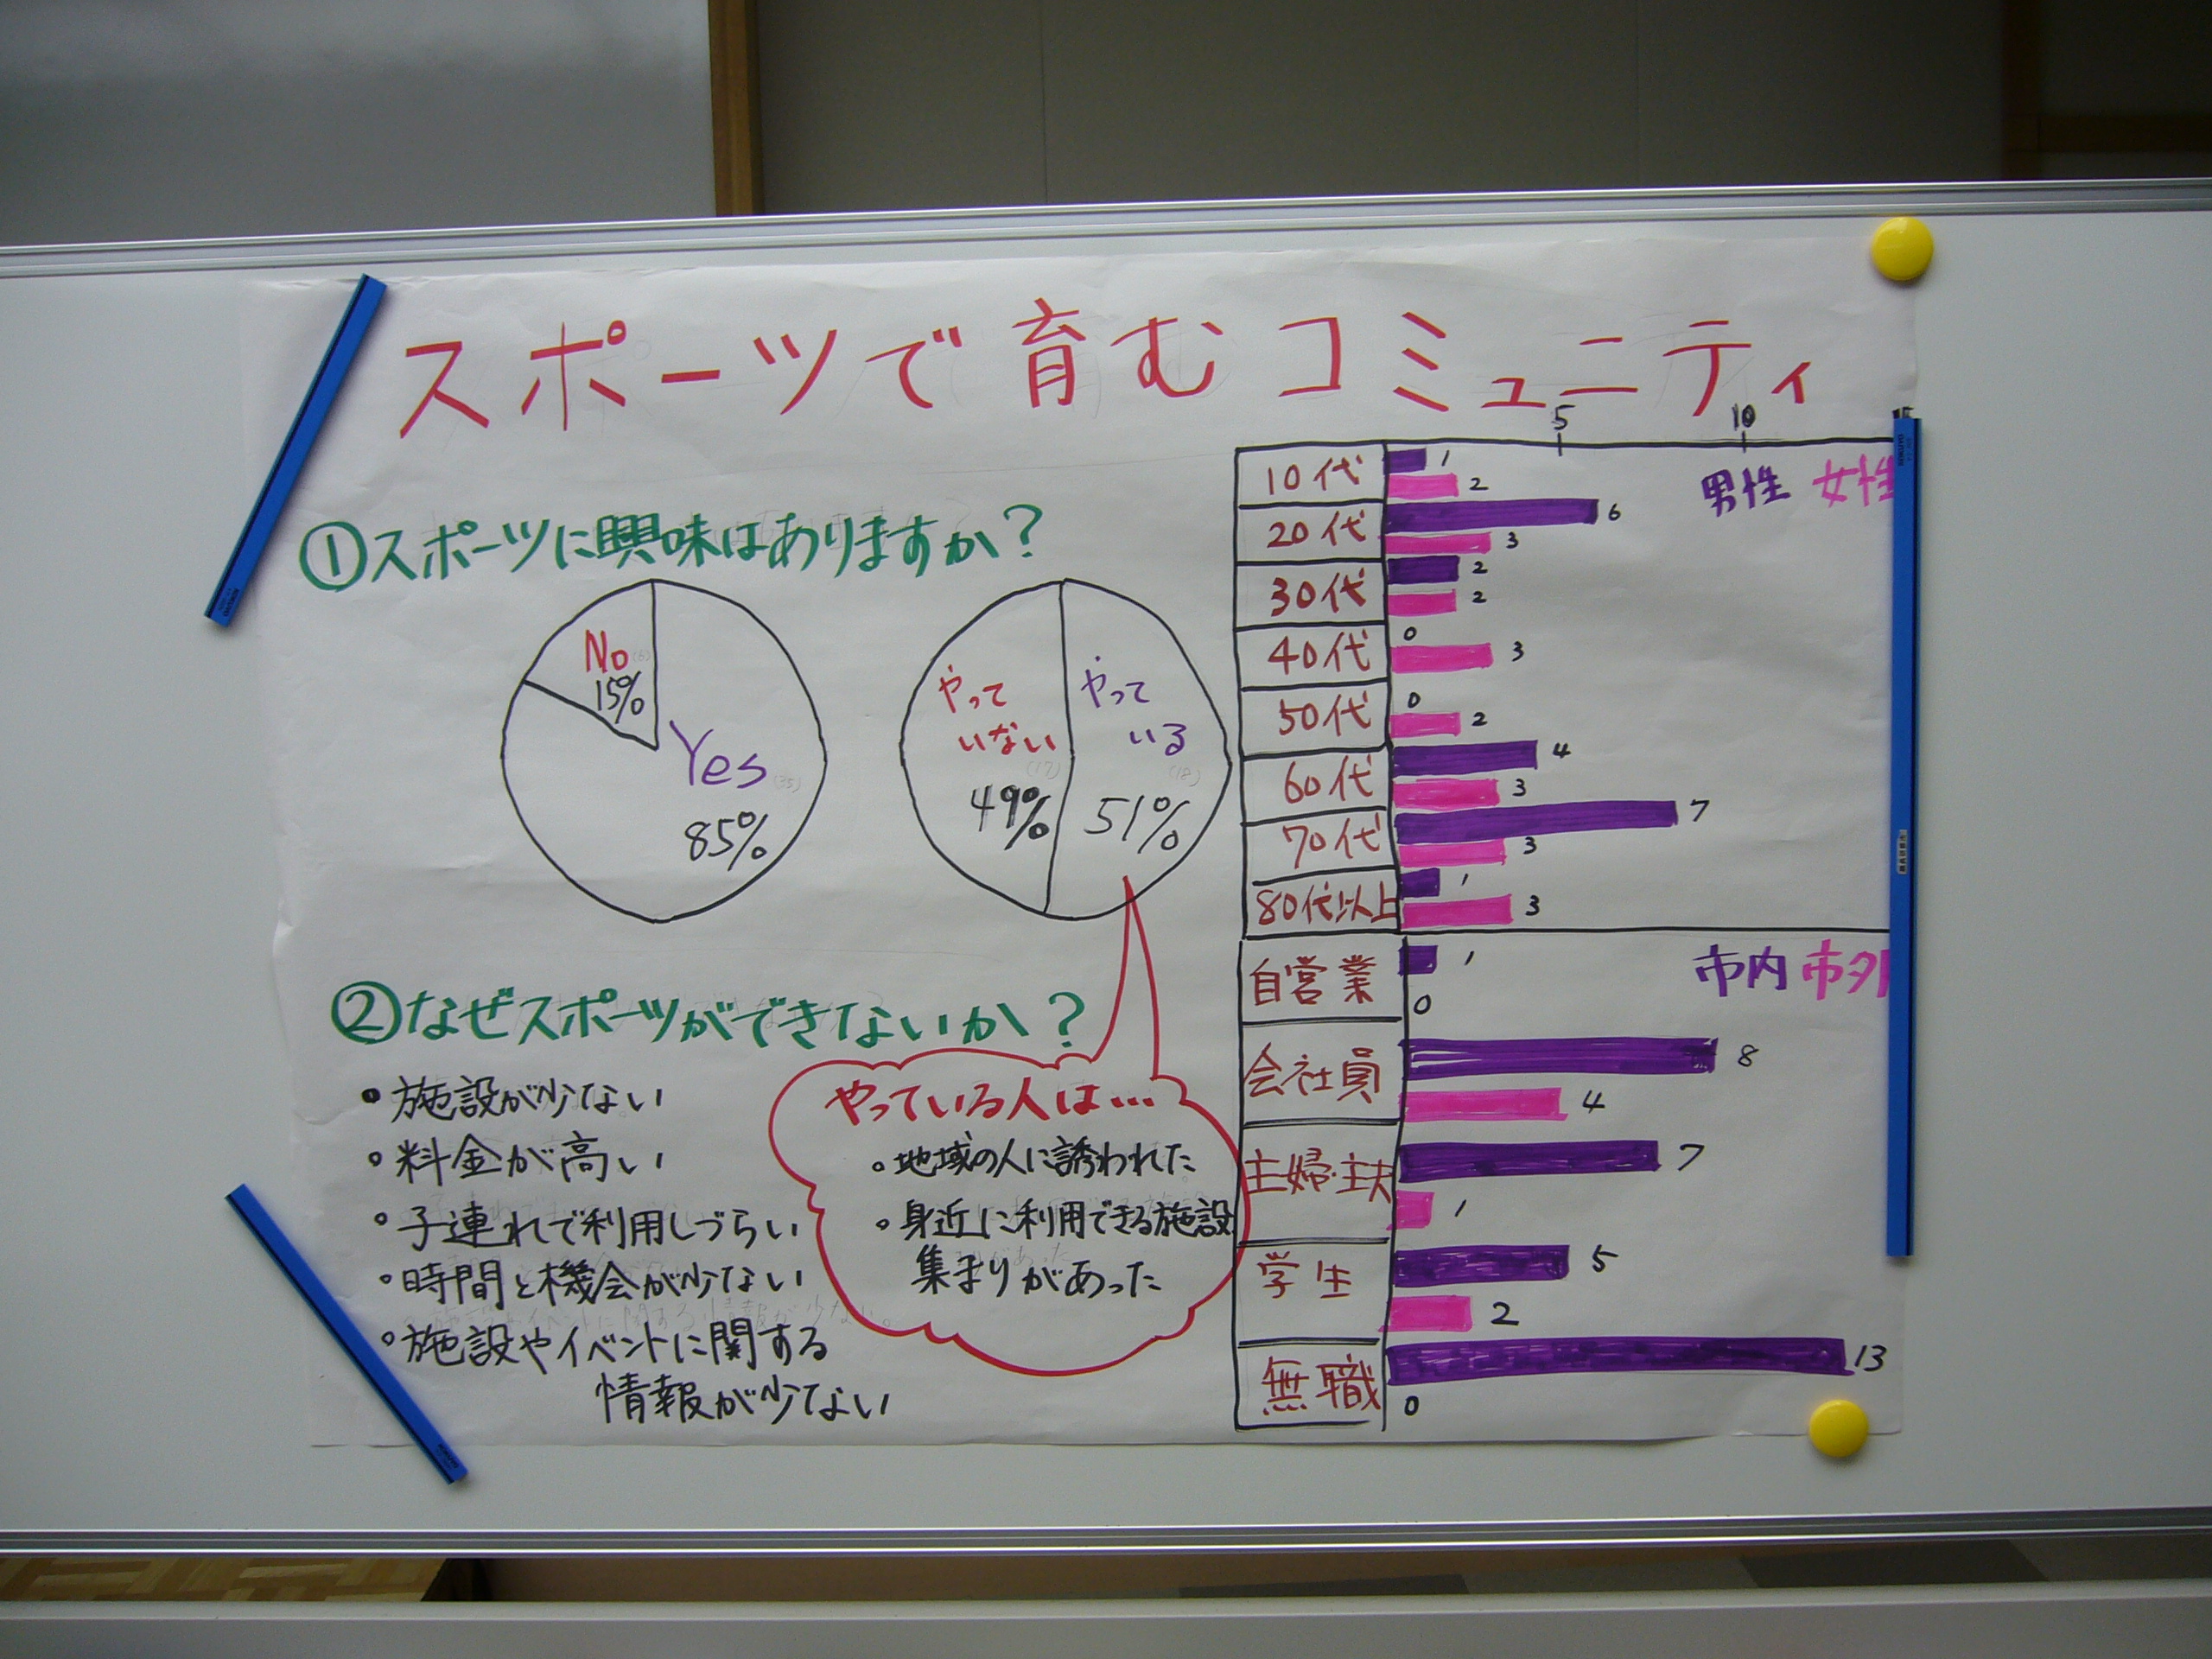 スポーツで育むコミュニティ
①スポーツに興味はありますか？
No (6)
15%
Yes (35)
85%
やって
いない (17)
49%
やって
いる (18)
51%
②なぜスポーツができないか？
• 施設が少ない
• 料金が高い
• 子連れで利用しづらい
• 時間と機会が少ない
• 施設やイベントに関する
情報が少ない
やっている人は…
• 地域の人に誘われた
• 身近に利用できる施設
集まりがあった
5 10
男性 女性
10代 1
2
20代 6
3
30代 2
2
40代 0
3
50代 0
2
60代 4
3
70代 7
3
80代以上 1
3
市内 市外
自営業 1
0
会社員 8
4
主婦・主夫 7
1
学生 5
2
無職 13
0